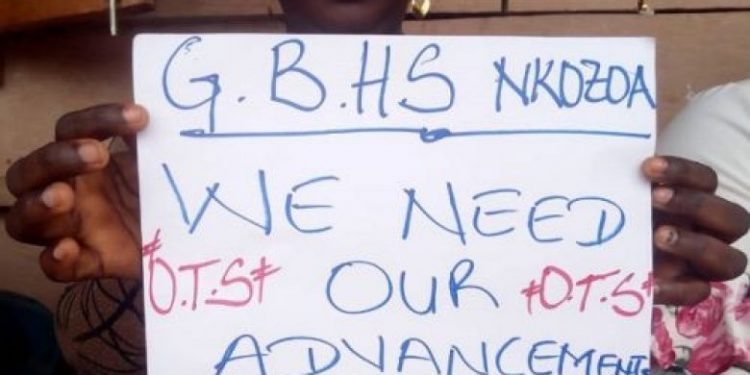 G.B.HS NKOZOA
WE NEED
#O.T.S# OUR #O.T.S#
ADVANCEMENT